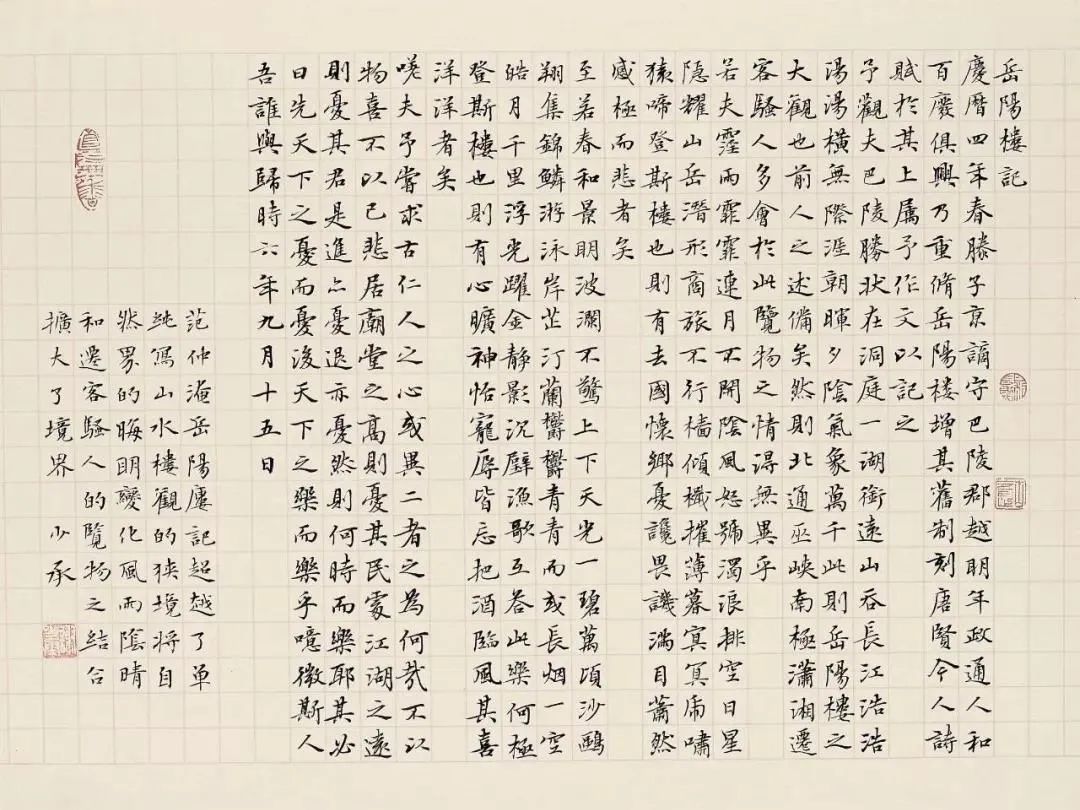 岳陽樓記
慶曆四年春滕子京謫守巴陵郡越明年政通人和
百廢俱興乃重脩岳陽樓增其舊制刻唐賢今人詩
賦於其上属予作文以記之
予觀夫巴陵勝狀在洞庭一湖銜遠山吞長江浩浩
湯湯橫無際涯朝暉夕陰氣象萬千此則岳陽樓之
大觀也前人之述備矣然則北通巫峽南極瀟湘遷
客騷人多會於此覽物之情淂無異乎
若夫霪雨霏霏連月不開陰風怒號濁浪排空日星
隱耀山岳潛形商旅不行檣傾檝摧薄暮冥冥虎嘯
猿啼登斯樓也則有去國懷鄉憂讒畏譏滿目蕭然
感極而悲者矣
至若春和景明波瀾不驚上下天光一碧萬頃沙鷗
翔集錦鱗游泳岸芷汀蘭欝欝青青而或長烟一空
皓月千里浮光躍金靜影沉璧漁歌互荅此樂何極
登斯樓也則有心曠神怡寵辱皆忘把酒臨風其喜
洋洋者矣
嗟夫予嘗求古仁人之心或異二者之為何哉不以
物喜不以己悲居廟堂之高則憂其民處江湖之遠
則憂其君是進亦憂退亦憂然則何時而樂耶其必
日先天下之憂而憂後天下之樂而樂乎噫微斯人
吾誰與歸時六年九月十五日
范仲淹岳陽廔記超越了單
純寫山水樓觀的狹境將自
然界的晦明變化風雨陰晴
和遷客騷人的覽物之結合
擴大了境界 少承